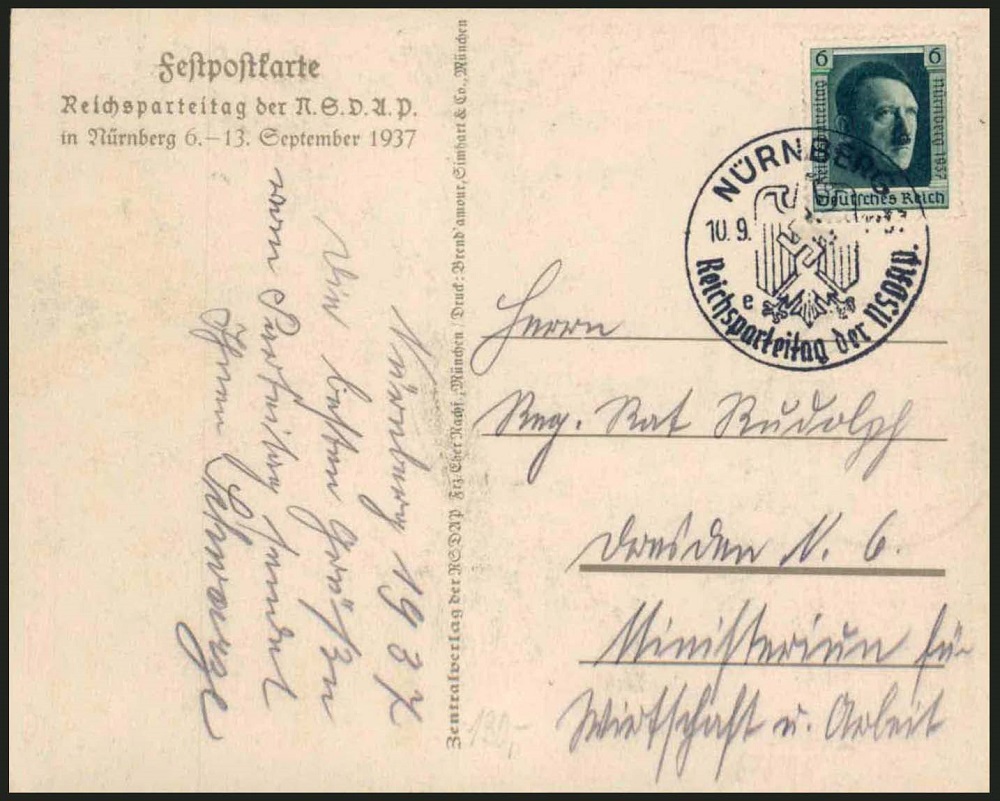 Festpostkarte
Reichsparteitag der N.S.D.A.P.
in Nürnberg 6.–13. September 1937
Nürnberg 1937
Die besten Grüßen
vom Parteitag sendet
Ihnen Schwarze
Zentralverlag der NSDAP Frz. Eher Nachf., München / Druck: Brend'amour, Simhart & Co., München
6 6
Reichsparteitag
Nürnberg 1937
Deutsches Reich
NÜRNBERG
10.9.
e
Reichsparteitag der NSDAP.
Herrn
Reg. Rat Rudolph
Dresden N. 6.
Ministerium für
Wirtschaft u. Arbeit
130,-